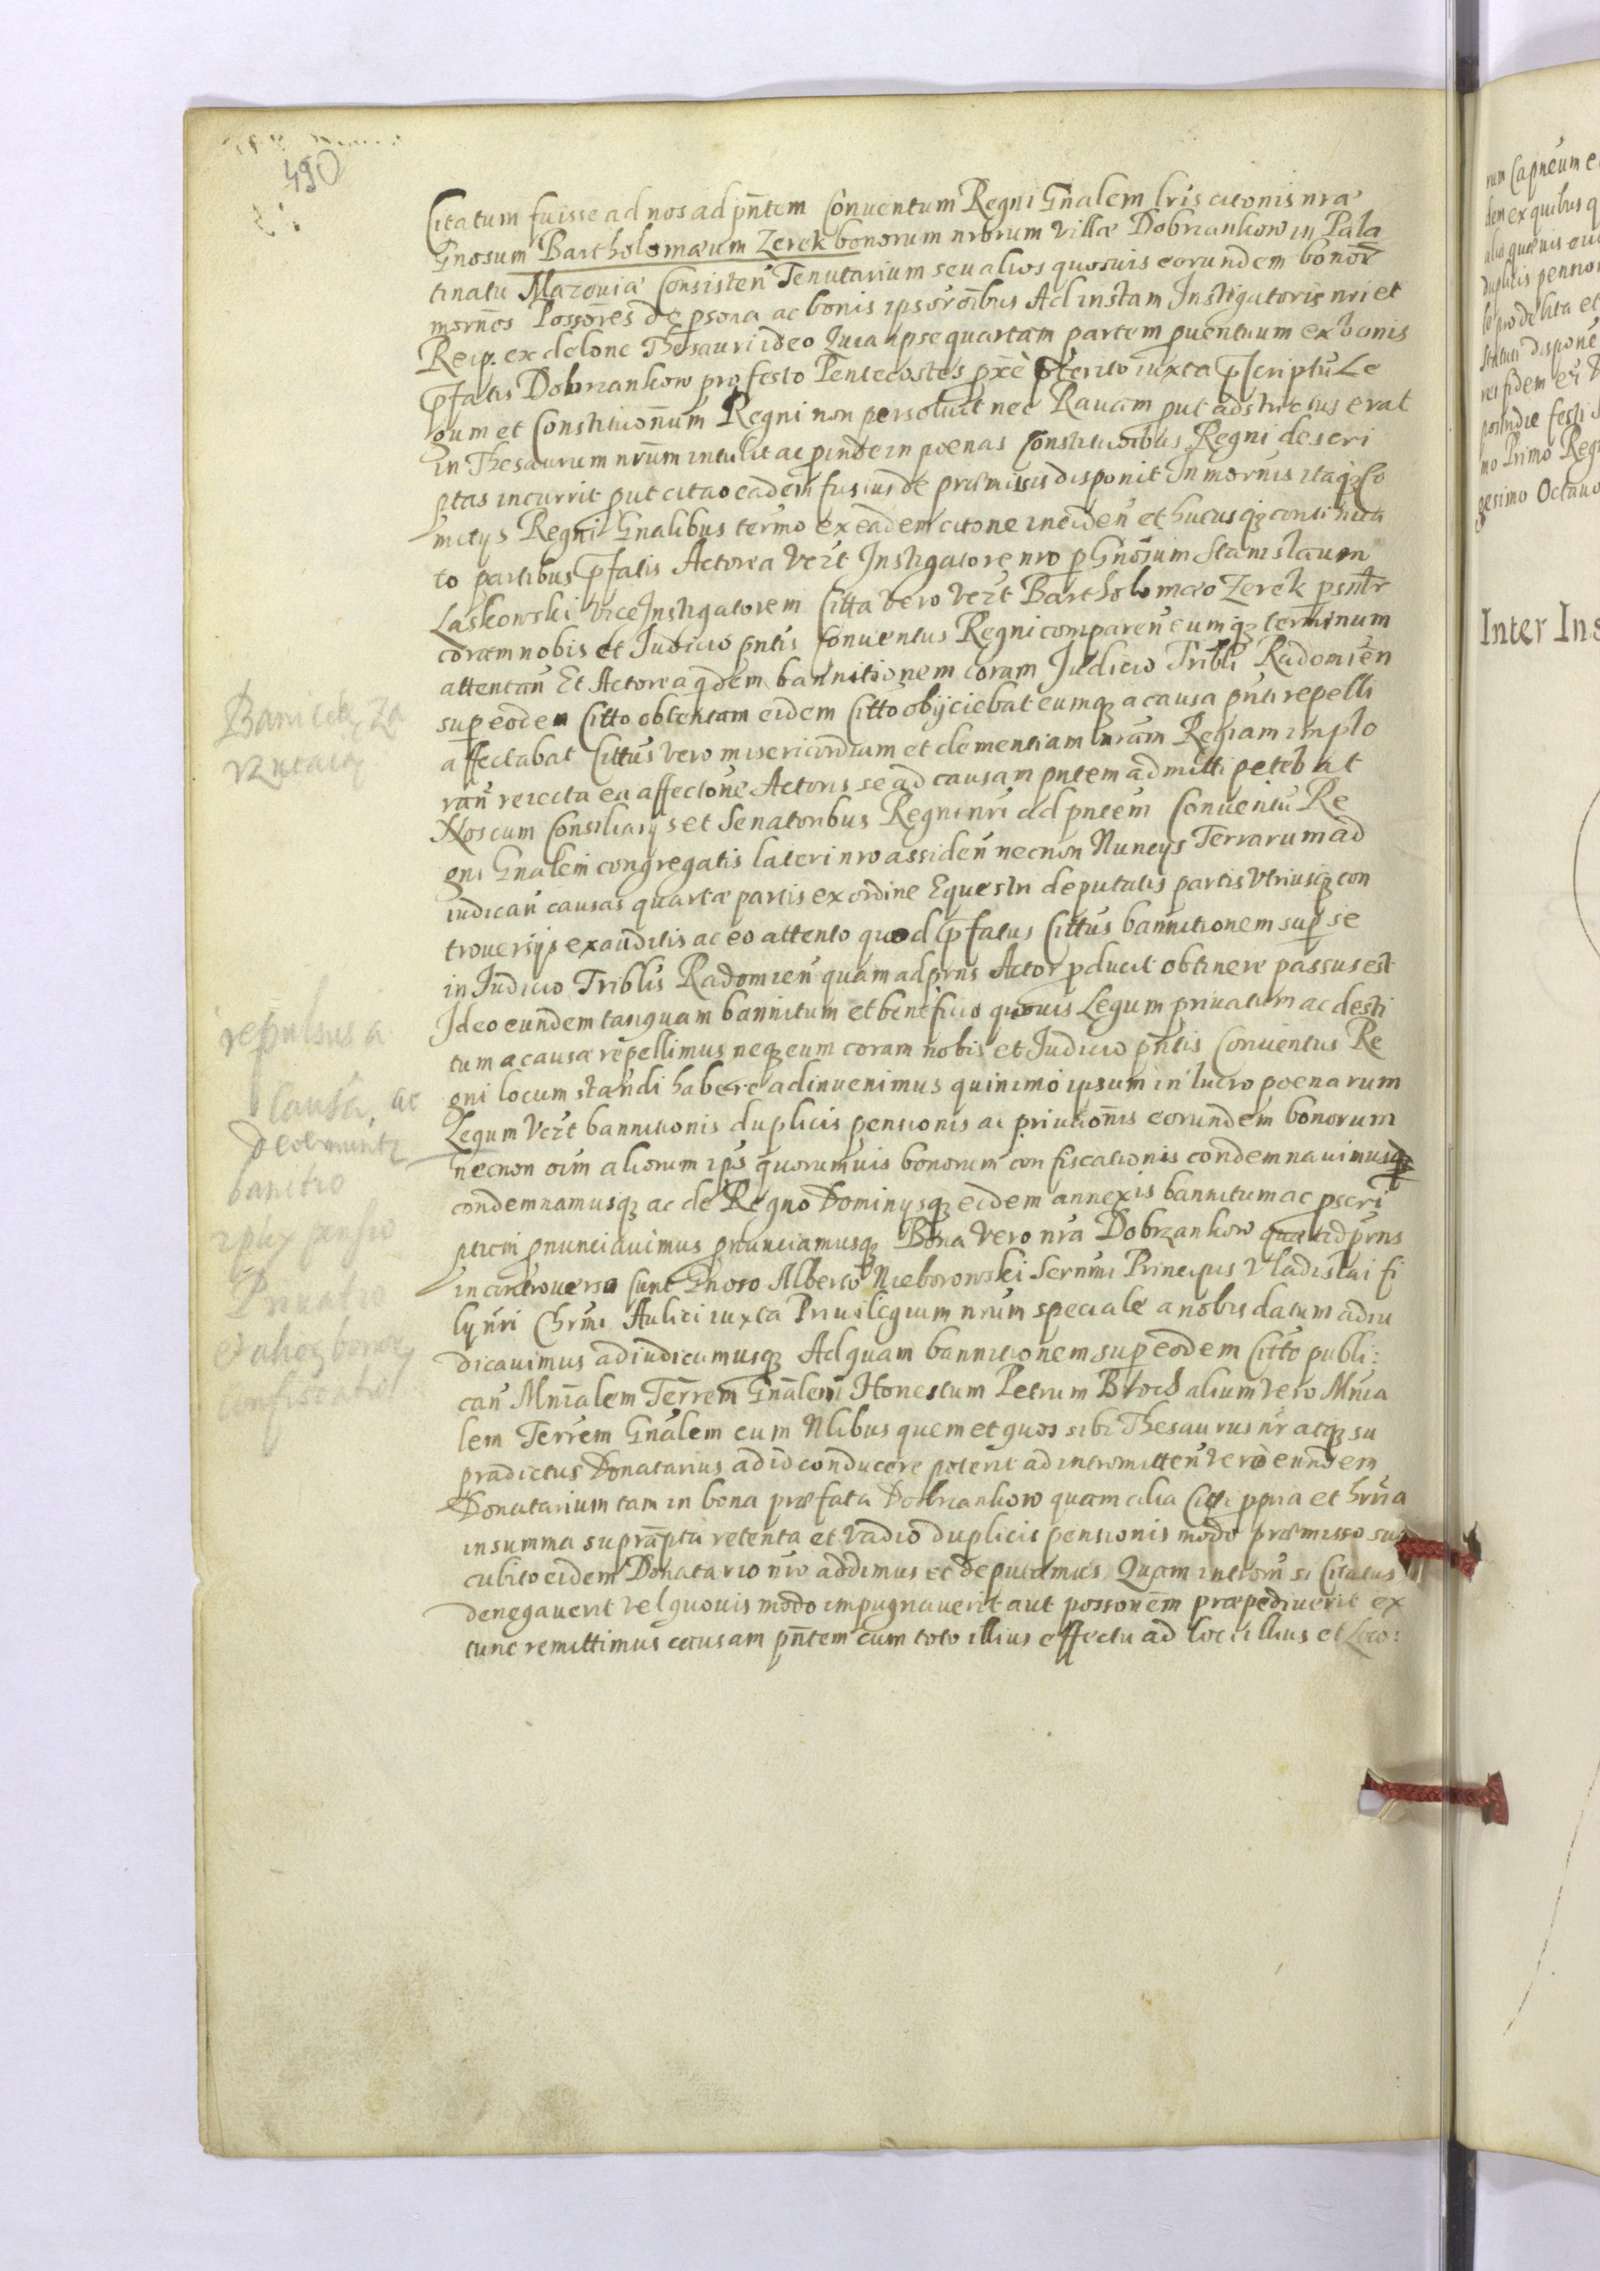 490
Citatum fuisse ad nos ad pñtem Conventum Regni Gñalem lris citonis nrae
Gnosum Bartholomæum Zerek bonorum nrorum villæ Dobrzankow in Pala
tinatu Mazoviæ Consisteñ Tenutarium seu alios quosvis eorundem bonor
mornõs Possores de psona ac bonis ipsor oibus Ad instam Instigatoris nri et
Reip. ex delone Thesauri ideo Quia ipse quartam partem pventuum ex bonis
pfatis Dobrzankow pro festo Pentecostes pxe pterito iuxta pscriptu Le
gum et Constituonum Regni non persoluit nec Ravam put adstrictus erat
in Thesaurum nrum intulit ac pinde in poenas Constitucoibus Regni descri
ptas incurrit put citao eadem fusius de præmissis disponit In mornis itaq; Co
mitys Regni Gnalibus termo ex eadem citone incideñ et hucusq; continua
to partibus pfatis Actorea vert Instigatore nro p Gnosum Stanislaum
Laskowski Vice Instigatorem Citta vero vert Bartholomæo Zerek psnlr
coram nobis et Judicio pntis Conventus Regni compareñ eumq; terminum
attentañ Et Actorea qdem bannitionem coram Judicio Tribli Radomien
sup eodem Citto obtentam eidem Citto obijciebat eumq; a causa pnti repelli
affectabat Cittus vero misericordiam et clementiam nram Regiam implo
rañ reiecta ea affectone Actoris se ad causam pntem admitti petebat
Nos cum Consiliarys et Senatoribus Regni nri ad pntem Conventu Re
gni Gnalem congregatis lateri nro assideñ necnon Nuncys Terrarum ad
iudicañ causas quartæ partis ex ordine Equestri deputatis partis Vtriusq; con
troversys exauditis ac eo attento quod pfatus Cittus bannitionem sup se
in Judicio Triblis Radomien quam ad prns Actor pducit obtinere passus est
Ideo eundem tanquam bannitum et beneficio quovis Legum privatum ac desti
tum a causa repellimus neq; eum coram nobis et Judicio pñtis Conventus Re
gni locum standi habere adinvenimus quinimo ipsum in lucro poenarum
Legum vert bannitionis duplicis pensionis ac privationis eorundem bonorum
necnon oim aliorum ips quorumvis bonorum confiscationis condemnavimusq;
condemnamusq; ac de Regno Dominysq; eidem annexis bannitum ac pscri
ptum pnunciavimus pnunciamusq; Bona vero nra Dobrzankow quæ ad prns
in controversa sunt Gnoso Alberto Nieborowski Sernmi Principis Vladislai fi
ly nri Chrmi Aulici iuxta Privilegium nrum speciale a nobis datum adiu
dicavimus adiudicamusq; Ad quam bannitionem sup eodem Citto publi:
cañ Mnialem Terrem Gnalem Honestum Petrum Broch alium vero Mnia
lem Terrem Gnalem cum Nlibus quem et quos sibi Thesaurus nr atq; su
pradictus Donatarius ad id conducere poterit ad intromitteñ vero eundem
Donatarium tam in bona præfata Dobrzankow quam alia Citti ppria et hrria
in summa supraptu retenta et vadio duplicis pensionis modo præmisso suc
cubito eidem Donatario nro addimus et deputamus Quam introm si Citatus
denegaverit vel quovis modo impugnaverit aut possonem præpediverit ex
tunc remittimus causam pñtem cum toto illius effectu ad loci illius et Loco:
repulsus a
causa, ac
banitio
2plex pensio
Privatio
et aliorq bonorq
confiscatio
rum Capneum e
den ex quibus q
duplicis pension
mo Primo Regn
gesimo Octavo
Inter Ins